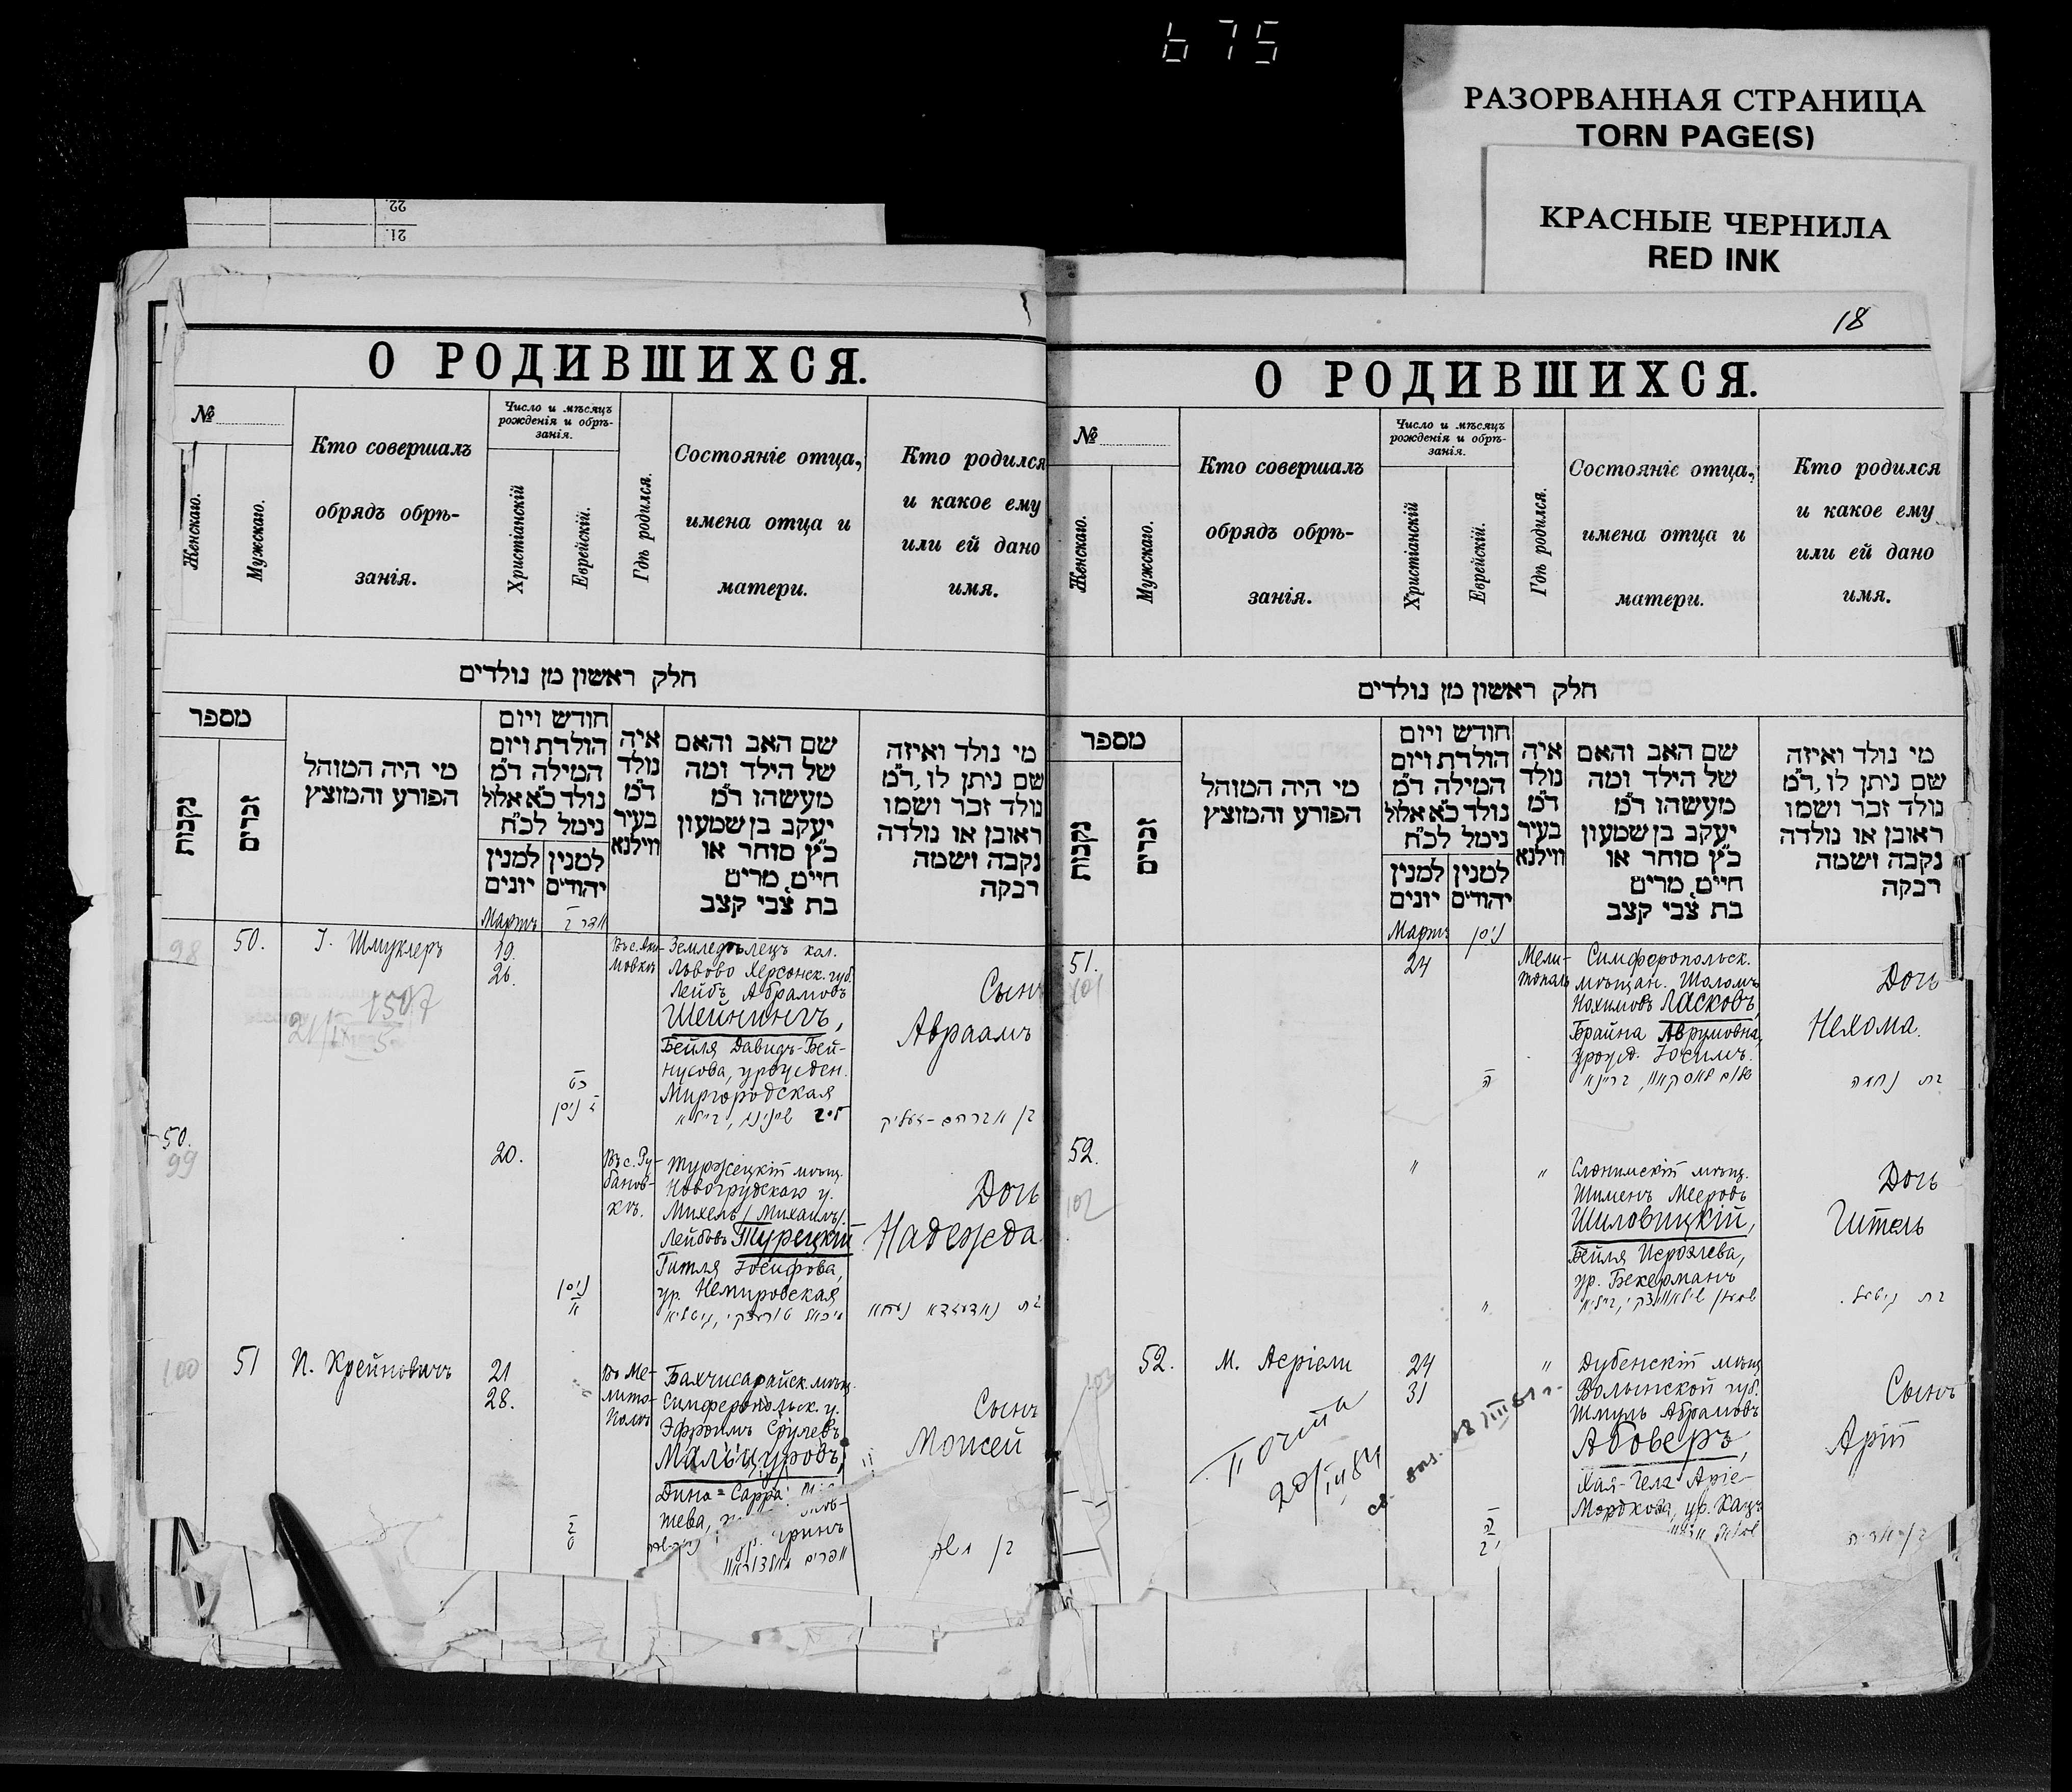 675
РАЗОРВАННАЯ СТРАНИЦА
TORN PAGE(S)
КРАСНЫЕ ЧЕРНИЛА
RED INK
22.
21.
О РОДИВШИХСЯ.
№
Женскаго.
Мужскаго.
Кто совершалъ
обрядъ обрѣ-
занія.
Число и мѣсяцъ
рожденія и обрѣ-
занія.
Христіанскій
Еврейскій.
Гдѣ родился.
Состояніе отца,
имена отца и
матери.
Кто родился
и какое ему
или ей дано
имя.
חלק ראשון מן נולדים
מספר
נקבות
זכרים
מי היה המוהל
הפורע והמוצץ
חודש ויום
הולדת ויום
המילה ד״מ
נולד כ״א אלול
נימל לכ״ח
למנין יונים
למנין יהודים
איה
נולד
ד״מ
בעיר
ווילנא
שם האב והאם
של הילד ומה
מעשהו ד״מ
יעקב בן שמעון
כ״ץ סוחר או
חיים, מרים
בת צבי קצב
מי נולד ואיזה
שם ניתן לו, ד״מ
נולד זכר ושמו
ראובן או נולדה
נקבה ושמה
רבקה
Мартъ
98
50.
І. Шмуклеръ
19.
26.
Въ с. Аки-
мовкѣ
Земледѣлецъ кол.
Львово Херсонск. губ.
Лейбъ Абрамовъ
Шейнингъ,
Бейля Давидъ-Бей-
нусова, урожден.
Миргородская
Сынъ
Авраамъ
כט
ניסן
50.
99
20.
Въ с. Ру-
банов-
кѣ.
Туржецкій мѣщ.
Новогрудскаго у.
Михель /Михаилъ/
Лейбовъ Турецкій
Гитля Іосифова,
ур. Немировская
Дочь
Надежда
ניסן
א
100
51
И. Крейновичъ
21
28.
Въ Ме-
лито-
полѣ
Бахчисарайск. мѣщ.
Симферопольск. у.
Эфроимъ Срулевъ
Дина-Сарра
Сынъ
Моисей
בן משה
18
О РОДИВШИХСЯ.
№
Женскаго.
Мужскаго.
Кто совершалъ
обрядъ обрѣ-
занія.
Число и мѣсяцъ
рожденія и обрѣ-
занія.
Христіанскій
Еврейскій.
Гдѣ родился.
Состояніе отца,
имена отца и
матери.
Кто родился
и какое ему
или ей дано
имя.
חלק ראשון מן נולדים
מספר
נקבות
זכרים
מי היה המוהל
הפורע והמוצץ
חודש ויום
הולדת ויום
המילה ד״מ
נולד כ״א אלול
נימל לכ״ח
למנין יונים
למנין יהודים
איה
נולד
ד״מ
בעיר
ווילנא
שם האב והאם
של הילד ומה
מעשהו ד״מ
יעקב בן שמעון
כ״ץ סוחר או
חיים, מרים
בת צבי קצב
מי נולד ואיזה
שם ניתן לו, ד״מ
נולד זכר ושמו
ראובן או נולדה
נקבה ושמה
רבקה
Мартъ
ניסן
51.
101
24
Мели-
тополь
Симферопольск.
мѣщан. Шаломъ
Нохимовъ Ласковъ,
Брайна Аврумовна,
урожд. Іоеилъ.
Дочь
Нехома.
ה
בת נחמה
52.
102
"
"
Слонимскій мѣщ.
Шименъ Мееровъ
Шиловицкій,
Бейля Исроэлева,
ур. Бекерманъ
Дочь
Гитель
"
בת גיטעל.
52.
М. Асріели
24
31
"
Дубенскій мѣщ.
Волынской губ.
Шмуль Абрамовъ
Абоверъ,
Хая-Гела Аріе-
Мордкова, ур. Кацъ
Сынъ
Арій
ה
יב